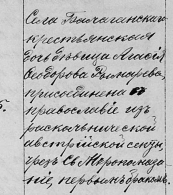 Села Балчаганскаго
крестьянская
дочь девица Агасія
Ѳеодорова Волмарева,
присоединена от
православіе изъ
раскольнической
австрійской секты,
чрезъ Св. Мѵропомаза-
ніе, первымъ бракомъ.
5.